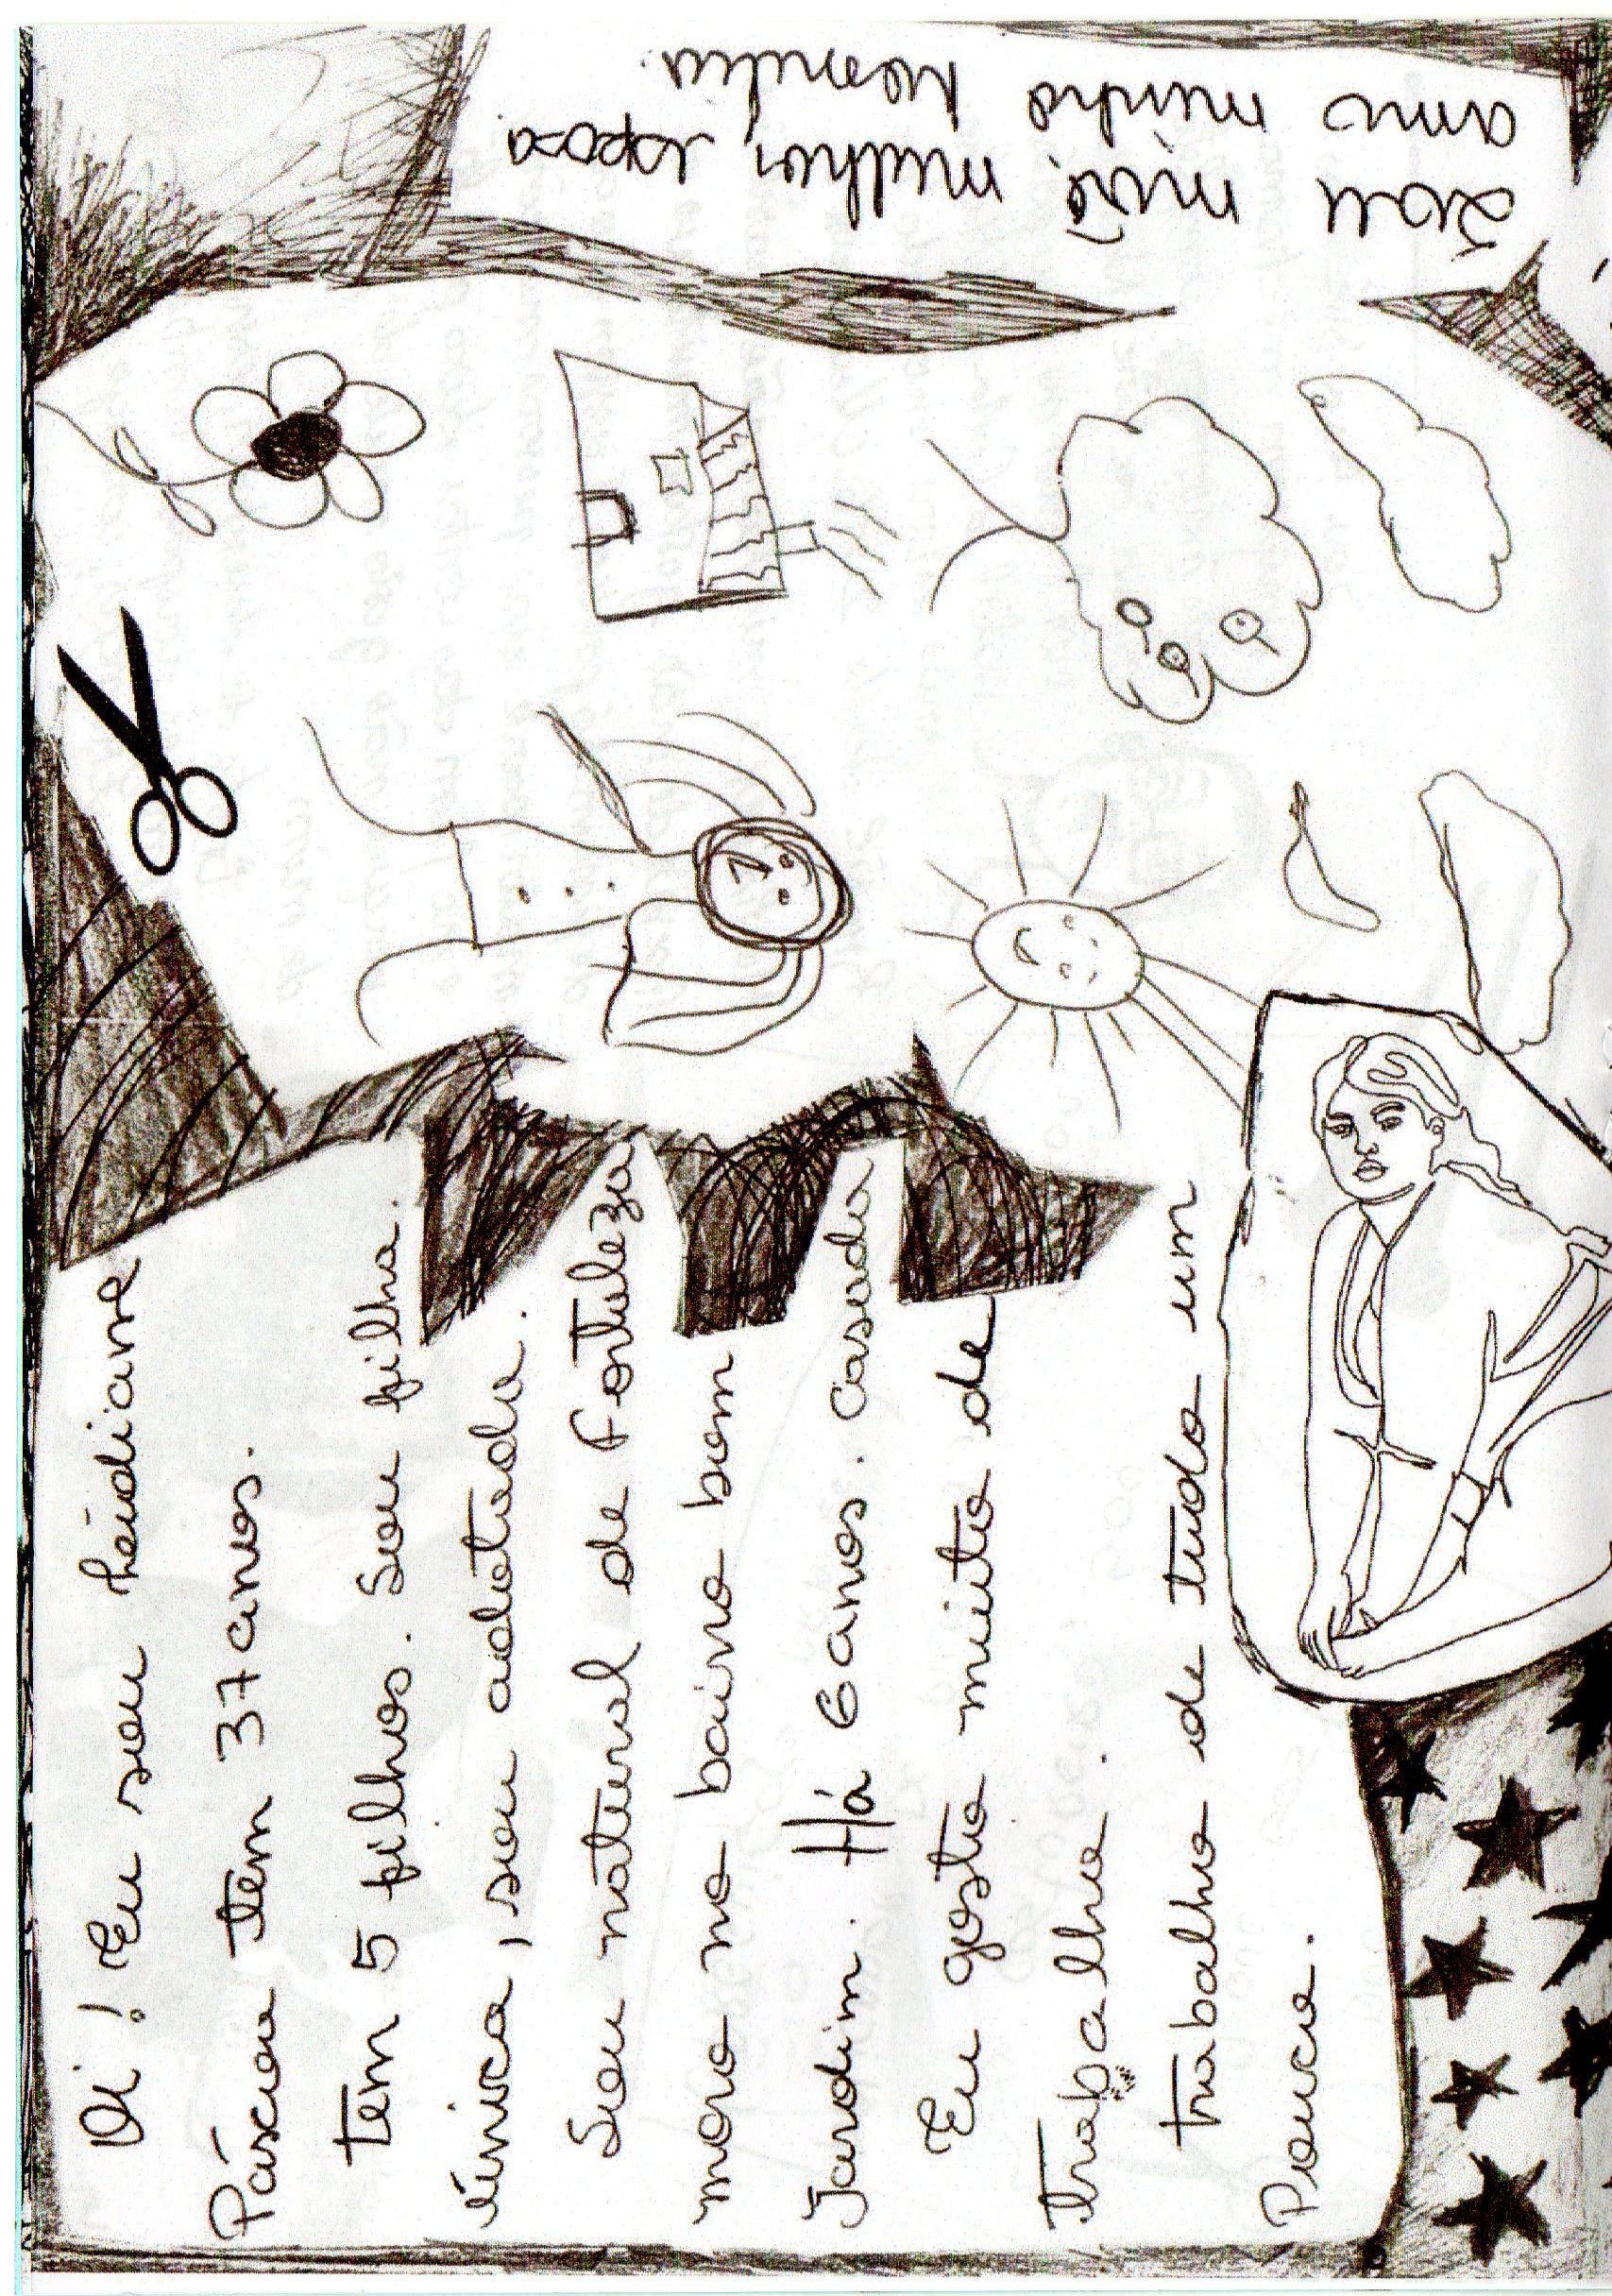 Oi! Eu sou Léidiane
Páscoa tem 37 anos.
tem 5 filhos. Sou filha.
única, sou adotada.
Sou natural de Fortaleza
moro no bairro bom
Jardim. Há 6 anos. casada
Eu gosto muito de
trabalha.
trabalho de tudo um
Pouco.
Sou mãe, mulher, esposa
amo minha família.